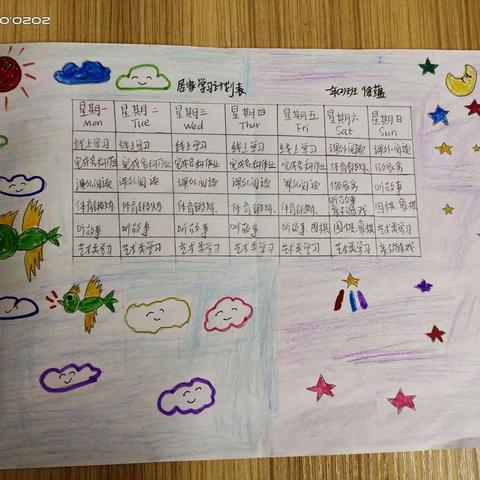 居家学习计划表
星期一 星期二 星期三 星期四 星期五 星期六 星期日
Mon Tue Wed Thur Fri Sat Sun
线上学习 线上学习 线上学习 线上学习 线上学习 课外阅读 课外阅读
完成各科作业 完成各科作业 完成各科作业 完成各科作业 完成各科作业 体育锻炼 做家务
课外阅读 课外阅读 课外阅读 课外阅读 课外阅读 做家务 听故事
体育锻炼 体育锻炼 体育锻炼 体育锻炼 体育锻炼 听故事 围棋.象棋
听故事 听故事 听故事 听故事 听故事.围棋 围棋.象棋 艺术类学习
艺术类学习 艺术类学习 艺术类学习 艺术类学习 艺术类学习 艺术类学习 亲子游戏